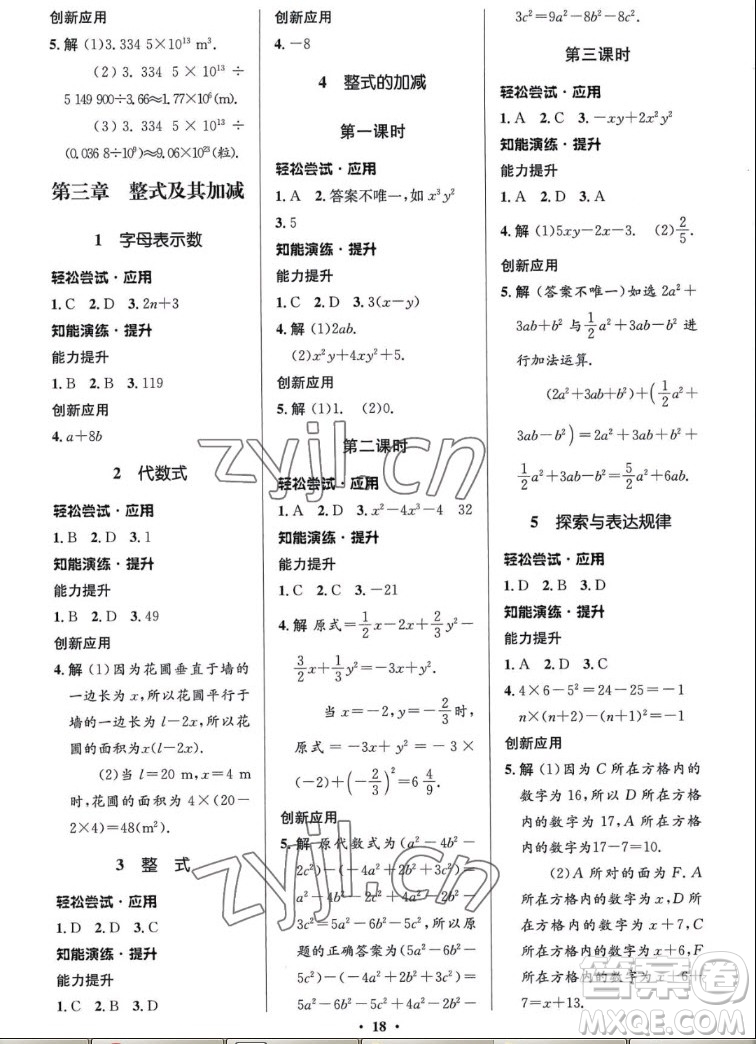 创新应用
5.解 (1)3.334 5×10¹³ m³.
(2) 3.334 5 × 10¹³ ÷
5 149 900÷3.66≈1.77×10⁶(m).
(3) 3.334 5 × 10¹³ ÷
(0.036 8÷10⁹)≈9.06×10²³(粒).
第三章 整式及其加减
1 字母表示数
轻松尝试·应用
1.C 2.D 3.2n+3
知能演练·提升
能力提升
1.B 2.B 3.119
创新应用
4.a+8b
2 代数式
轻松尝试·应用
1.B 2.D 3.1
知能演练·提升
能力提升
1.B 2.D 3.49
创新应用
4.解 (1)因为花圃垂直于墙的
一边长为x,所以花圃平行于
墙的一边长为l-2x,所以花
圃的面积为x(l-2x).
(2)当 l=20 m,x=4 m
时,花圃的面积为 4×(20-
2×4)=48(m²).
3 整 式
轻松尝试·应用
1.D 2.D 3.C
知能演练·提升
能力提升
1.C 2.B 3.D
创新应用
4.-8
4 整式的加减
第一课时
轻松尝试·应用
1.A 2.答案不唯一,如 x³y²
3.5
知能演练·提升
能力提升
1.C 2.D 3.3(x-y)
4.解 (1)2ab.
(2)x²y+4xy²+5.
创新应用
5.解 (1)1. (2)0.
第二课时
轻松尝试·应用
1.A 2.D 3.x²-4x³-4 32
知能演练·提升
能力提升
1.C 2.C 3.-21
4.解 原式=1/2x-2x+2/3y²-
3/2x+1/3y²=-3x+y².
当 x=-2,y=-2/3时,
原式=-3x+y²=-3×
(-2)+(-2/3)²=6 4/9.
创新应用
5.解 原代数式为(a²-4b²-
2c²)-(-4a²+2b²+3c²)=
a²-4b²-2c²+4a²-2b²-
3c²=5a²-6b²-5c²,所以原
题的正确答案为(5a²-6b²-
5c²)-(-4a²+2b²+3c²)=
5a²-6b²-5c²+4a²-2b²-
3c²=9a²-8b²-8c².
第三课时
轻松尝试·应用
1.A 2.C 3.-xy+2x²y²
知能演练·提升
能力提升
1.A 2.C 3.A
4.解 (1)5xy-2x-3. (2)2/5.
创新应用
5.解 (答案不唯一)如选2a²+
3ab+b²与1/2a²+3ab-b²进
行加法运算.
(2a²+3ab+b²)+(1/2a²+
3ab-b²)=2a²+3ab+b²+
1/2a²+3ab-b²=5/2a²+6ab.
5 探索与表达规律
轻松尝试·应用
1.D 2.B 3.D
知能演练·提升
能力提升
1.A 2.D 3.C
4.4×6-5²=24-25=-1
n×(n+2)-(n+1)²=-1
创新应用
5.解 (1)因为C所在方格内的
数字为16,所以D所在方格
内的数字为17,A所在方格
内的数字为17-7=10.
(2)A所对的面为F.A
所在方格内的数字为x,D所
在方格内的数字为x+7,C所
在方格内的数字为x+6,F所
在方格内的数字为x+6+
7=x+13.
· 18 ·
zyjl.cn
zyjl.cn
答案圈
MXQE.COM